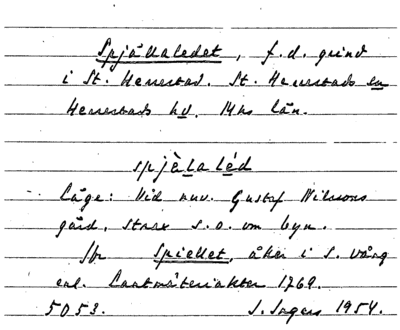 Spjällaledet, f.d. grind
i St. Herrestad. St. Herrestads sn
Herrestads hd. Mhs län.
spjälaléd
Läge: Vid nuv. Gustaf Nilssons
gård, strax s.o. om byn.
Jfr Spiellet, åker i S. vång
enl. Lantmäteriakten 1769.
5053. J. Ingers 1954.